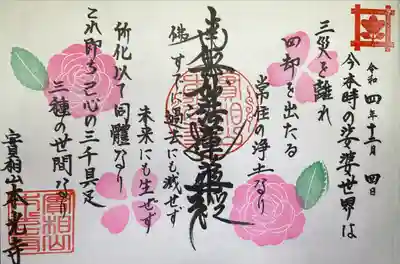 令和四年十二月四日
今本時の娑婆世界は
三災を離れ
四劫を出たる
常住の浄土なり
南無妙法蓮華経
佛すでに過去にも滅せず
未来にも生せず
所化以て同體なり
これ即ち己心の三千具足
三種の世間なり
實相山本光寺